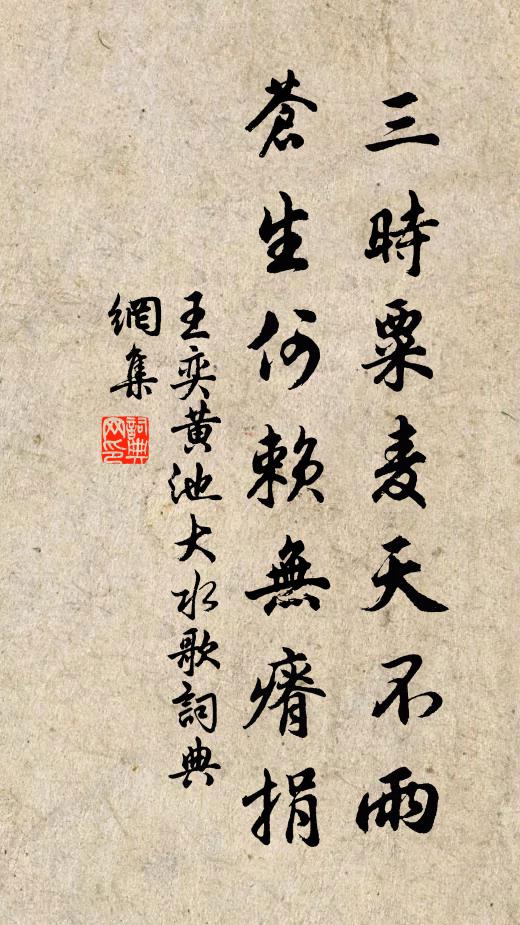 三時粟麦天不雨
蒼生何賴無瘠捐
王奕黄池大水歌詞典
網集
詞典網印